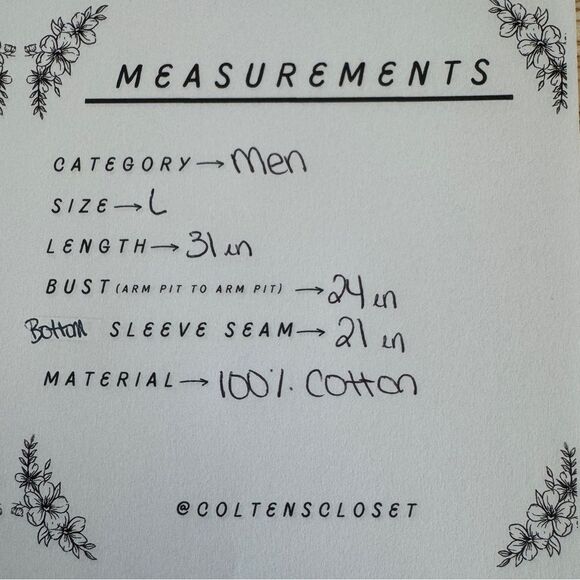 MEASUREMENTS
CATEGORY → Men
SIZE → L
LENGTH → 31 in
BUST (ARM PIT TO ARM PIT) → 24 in
Bottom SLEEVE SEAM → 21 in
MATERIAL → 100% Cotton
@COLTENSCLOSET